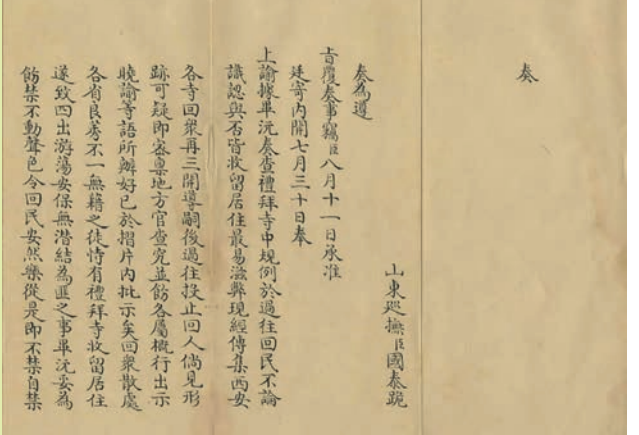 奏
山東巡撫臣國泰跪
奏為遵
旨覆奏事竊臣八月十一日承准
廷寄內開七月三十日奉
上諭據畢沅奏查禮拜寺中規例於過往回民不論
識認與否皆收留居住最易滋弊現經傳集西安
各寺回衆再三開導嗣後過往投止回人倘見形
跡可疑即密禀地方官查究並飭各屬概行出示
曉諭等語所辦好已於摺片內批示矣回衆散處
各省良莠不一無籍之徒恃有禮拜寺收留居住
遂致四出游蕩安保無潜結為匪之事畢沅妥為
飭禁不動聲色令回民安然樂從是即不禁自禁